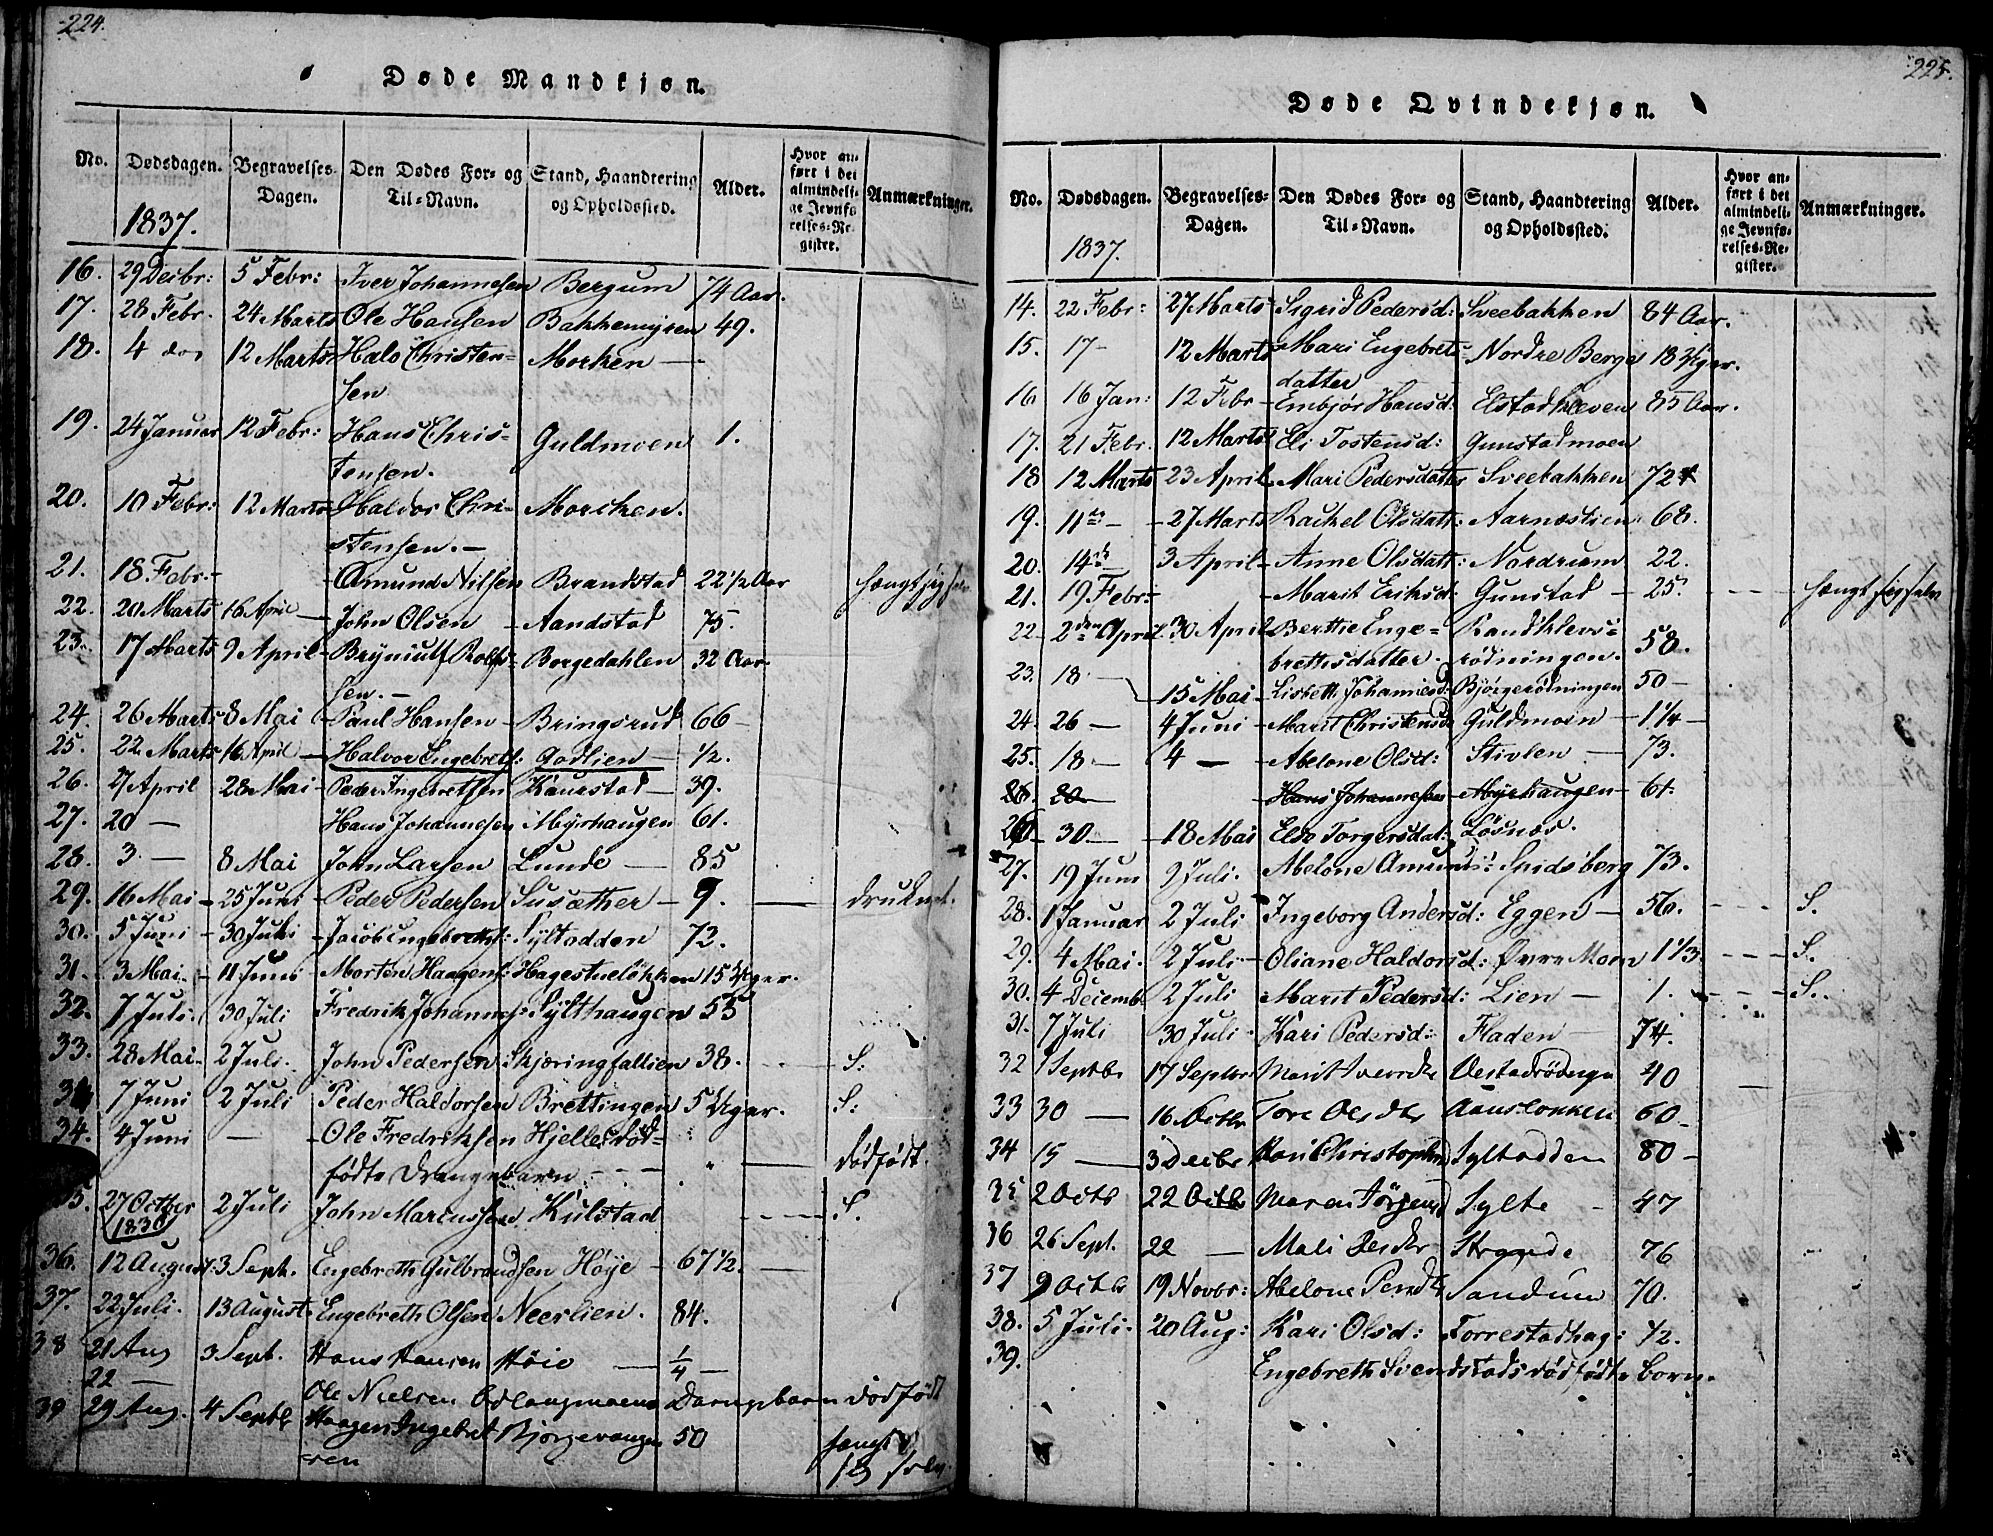 224.
Døde Mandkjøn.
No. Dødsdagen. Begravelses-Dagen. Den Dødes For- og Til-Navn. Stand, Haandtering og Opholdssted. Alder. Hvor anført i det almindelige Jevnførelses-Register. Anmærkninger.
1837.
16. 29 Decbr: 5 Febr: Iver Johannesen Bergum 74 Aar.
17. 28 Febr. 24 Marts Ole Hansen Bakkemyren 49.
18. 4 do 12 Marts Halv Christen-
sen Morken —
19. 24 Januar 12 Febr: Hans Chris-
tensen. Guldmoen 1.
20. 10 Febr: 12 Marts Haldor Chri-
stensen. — Morcken.
21. 18 Febr. - Amund Nilsen Brandstad 22 1/2 Aar hængt sig selv
22. 20 Marts 16 April — John Olsen Aandstad 75.
23. 17 Marts 9 April - Bryniulf Rolf-
sen. — Borgedahlen 32 Aar.
24. 26 Marts 8 Mai Paul Hansen Bringsrud 66 -
25. 22 Marts 16 April — Halvor Engebrets: Godlien — 1/2.
26. 7 April 28 Mai Peder Ingebretsen Kaurstad 39.
27. 20 — Hans Johannesen Myrhaugen 61.
28. 3. — 8 Mai John Larsen Lunde — 85
29. 16 Mai - 25 Juni Peder Pedersen Susæther — 9. — druknet.
30. 5 Juni - 30 Juli - Jacob Engebrets: Sylteodden 72.
31. 3 Mai - 11 Juni - Morten Haagens: Hagestueløkken 15 Uger.
32. 7 Juli. 30 Juli Fredrik Johannes: Sylthaugen 53
33. 28 Mai - 2 Juli. John Pedersen Skjæringfallien 38. S:
34 7 Juni 2 Juli Peder Haldorsen Brettingen 5 Uger. S:
34. 4 Juni — - Ole Fredriksen Hjellesdød-
fødte Drengebarn - - - " — dødfødt.
35. 27 October
1836 2 Juli John Marcussen Kulstad S.
36. 12 August: 3 Septb. Engebreth Gulbrandsen Høije - 67 1/2. —
37. 22 Juli. 13 August. Engebreth Olsen Neerlien. 84.
38 21 Aug 3 Sept. Hans Hansen Høie — 1/4 —
22 — Ole Nielsen dødfødt
39 29 Aug. 4 Septb Haagen Ingebret
sen Bjørgevangen 50 hængt
sig selv
225.
Døde Qvindekjøn.
No. Dødsdagen. Begravelses-Dagen. Den Dødes For- og Til-Navn. Stand, Haandtering og Opholdssted. Alder. Hvor anført i det almindelige Jevnførelses-Register. Anmærkninger.
1837.
14. 22 Febr: 27 Marts Sigrid Pedersd: Sveebakken 84 Aar.
15. 17 - 12 Marts Mari Engebrets
datter Nordre Berge 18 Uger.
16 16 Jan: 12 Febr - Embjør Hansd: Elstadkleven 85 Aar.
17. 21 Febr. 12 Marts Eli Tostensd: Gunstadmoen
18 12 Marts 23 April Mari Pedersdatter Sveebakken 72
19. 11te - - 27 Marts Rachel Olsdatt: Aarnæstien 68.
20. 14de 3 April - Anne Olsdatt: Nordrum 22.
21. 19 Febr: - Marit Eriksd: Gunstad - 25. - - - - hængt sig selv
22. 2den April. 30 April Berthe Enge-
brettsdatter. Randklevs-
rødningen. 58.
23. 18 15 Mai Lisbett Johannesd: Bjørgerødningen 50 —
24. 26 — 4 Juni - Marit Christensd: Guldmoen — 1 1/4 —
25. 18 — 4 — - Abelone Olsd: Stivlen — 73.
26. 20 — Hans Johannesen Myrhaugen 61.
26 30 — - 18 Mai Eldo Torgersdat: Løsnæs.
27. 19 Juni 9 Juli. Abelone Amunds: Spidsberg 73.
28. 1 Januar 2 Juli Ingeborg Andersd: Eggen — 56. - - - - S.
29. 4 Mai. 2 Juli - Oliane Haldorsd: Øvre Moen 1 1/3 - - - S.
30. 4 Decemb. 2 Juli Marit Pedersd: Lien — 1. - - - S.
31. 7 Juli 30 Juli Kari Pedersd: Fladen — 74.
32 1 Septbr 17 Septbr Marit Iversdtr 40
33 30 — 16 Octbr Tore Olsdtr Aanslokken 60 -
34 15 — 3 Decbr Kari Christophs Syltodden 80 -
35 2 Octb 22 Octbr Maren Jørgens Sylte - 47
36 26 Sept. 22 — Mali Pedtr 76
37 9 Octbr 19 Novbr: Abelone Sandum 70.
38. 5 Juli. 20 Aug: Kari Olsd: Forrestadhag: 1/2.
39. Engebreth Svendstads dødfødte barn.